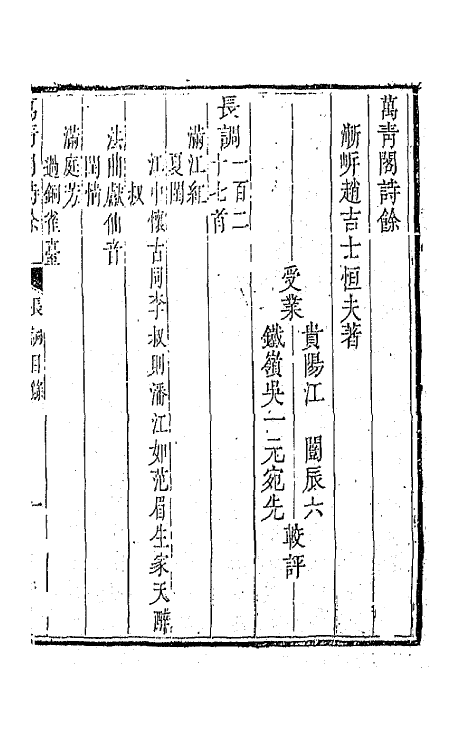 萬青閣詩餘
漸岍趙吉士恒夫著
受業
貴陽江 闓辰六
鐵嶺吳一元宛先
較評
長調一百二十七首
滿江紅
夏閨
江中懷古同李叔則潘江如范眉生家天醉
叔
法曲獻仙音
閨情
滿庭芳
過銅雀臺
萬青閣詩餘 長調目錄 一